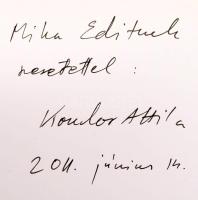 Mika Editnek
szeretettel:
Kondor Attila
2011. június 14.